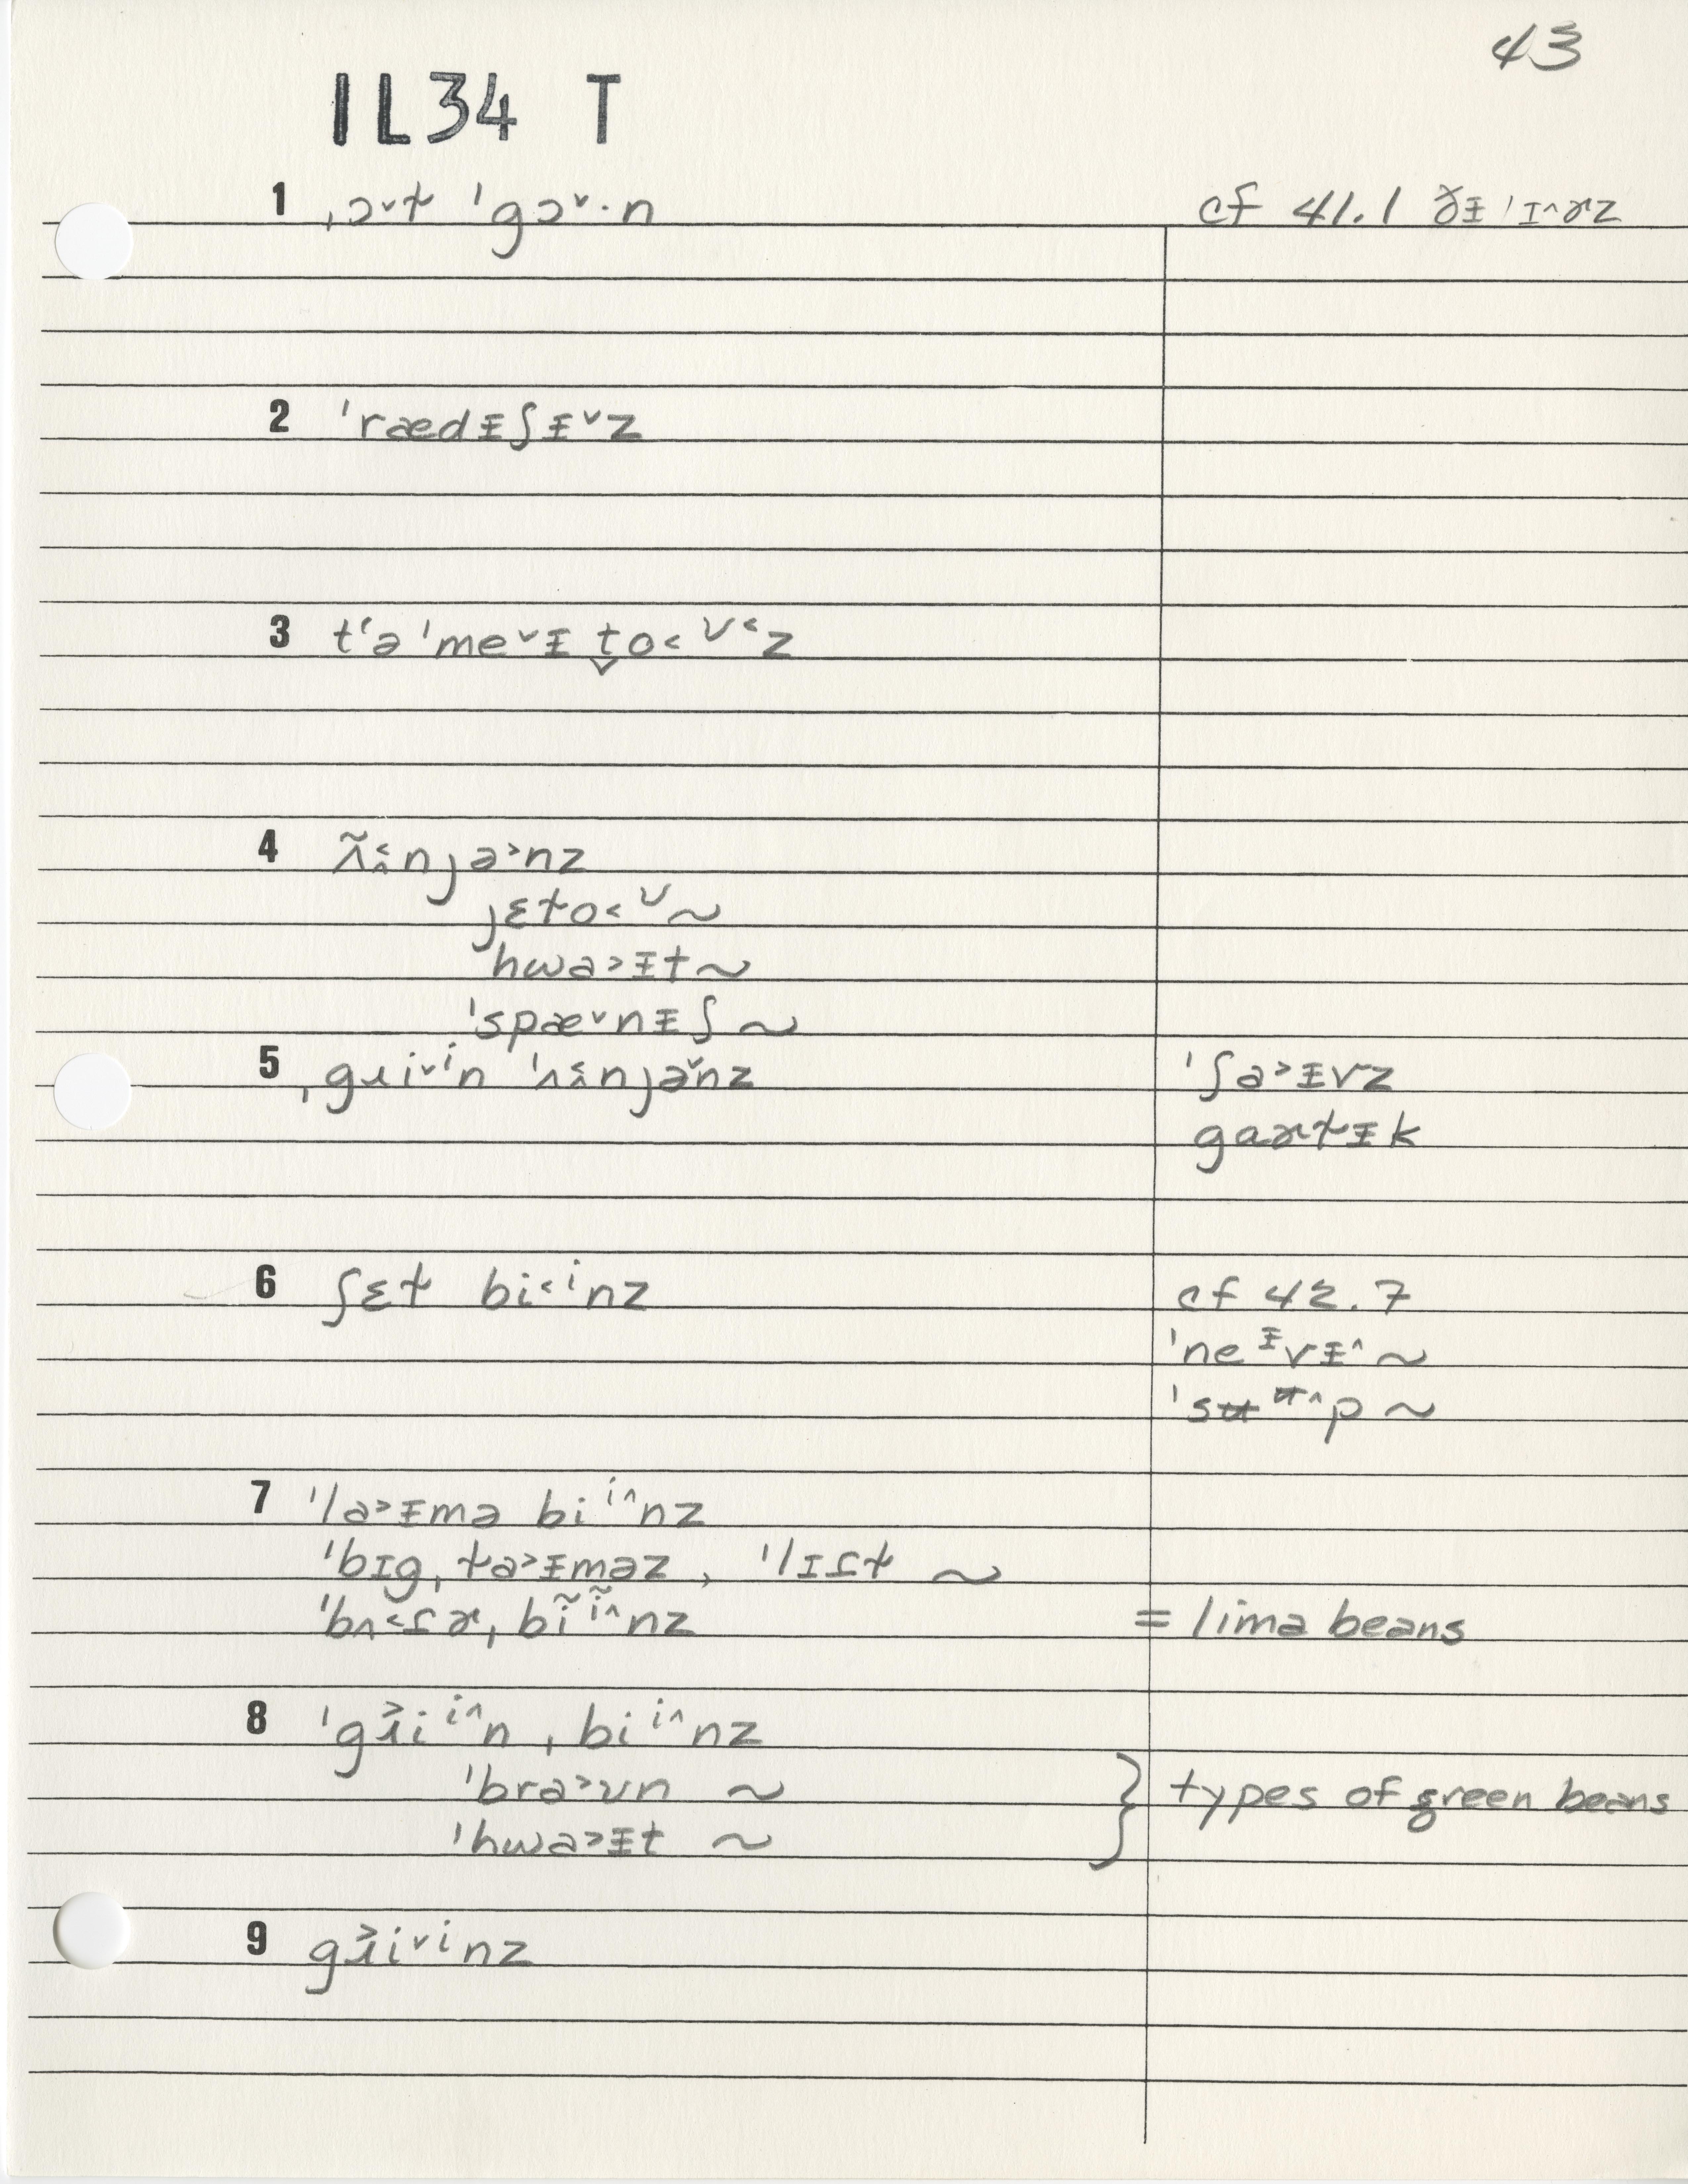 43
IL34 T
1 ˌɔ˅ɫ ˈgɔ˅·n cf 41.1 ðᵻ ˈɪ^ɚz
2 ˈrædᵻʃᵻ˅z
3 tʻə ˈme˅ᵻt̬o˂ᴜ˂z
4 ʌ̃˂̭njə˃nz
jɛɫo˂ᴜ ~
ˈhwa˃ᵻt ~
ˈspæ˅nᵻʃ ~
5 ˌgɹi˅ⁱn ˈʌ˂̭njə˅nz ˈʃa˃ᵻvz
gaɚɫᵻk
6 ʃɛɫ bi˂ⁱnz cf 42.7
ˈneᵻvᵻ^ ~
ˈsʉᶶ^p ~
7 ˈla˃ᵻmə biⁱ^nz
ˈbɪgˌɫa˃ᵻməz, ˈlɪɾɫ ~
ˈbʌ˂ɾɚˌbĩⁱ̃^nz = lima beans
8 ˈgɹ̌iⁱ^nˌbiⁱ^nz
ˈbra˃ʊn ~ types of green beans
ˈhwa˃ᵻt ~
9 gɹ̌i˅ⁱnz